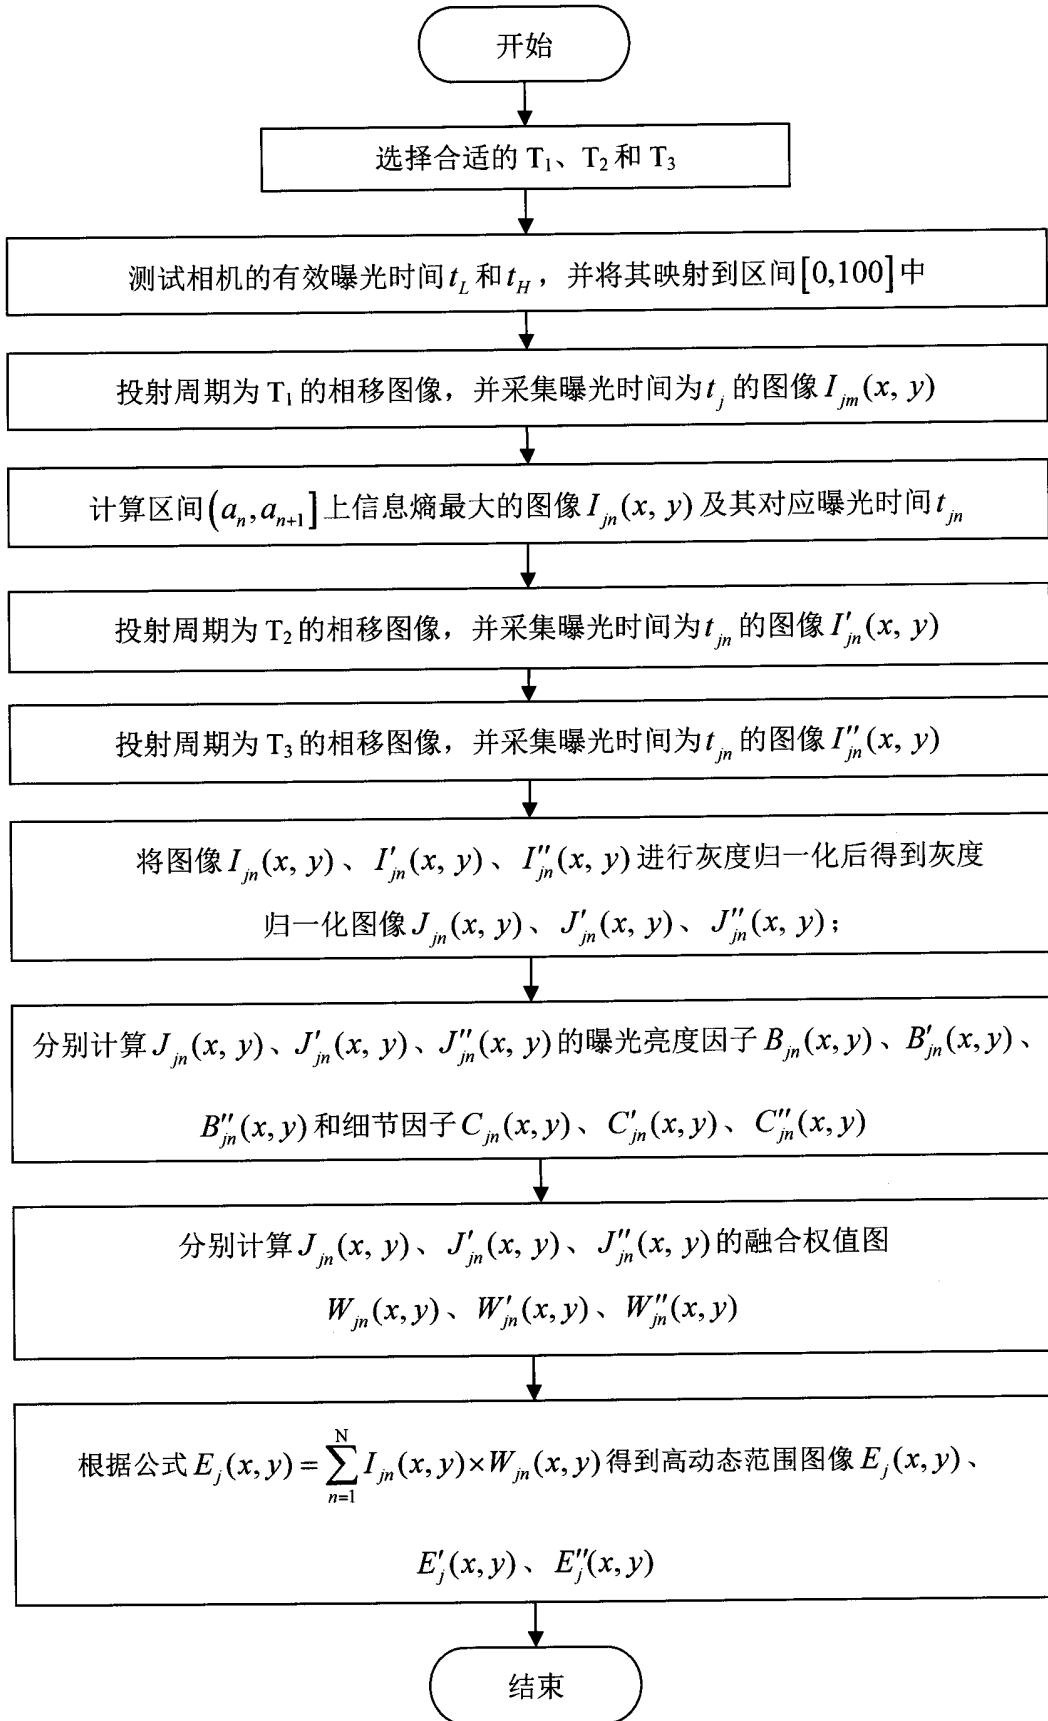 开始
选择合适的 T₁、T₂ 和 T₃
测试相机的有效曝光时间 t_L 和 t_H，并将其映射到区间[0,100]中
投射周期为 T₁ 的相移图像，并采集曝光时间为 t_j 的图像 I_jm(x, y)
计算区间(a_n, a_n+1]上信息熵最大的图像 I_jn(x, y) 及其对应曝光时间 t_jn
投射周期为 T₂ 的相移图像，并采集曝光时间为 t_jn 的图像 I′_jn(x, y)
投射周期为 T₃ 的相移图像，并采集曝光时间为 t_jn 的图像 I″_jn(x, y)
将图像 I_jn(x, y)、I′_jn(x, y)、I″_jn(x, y) 进行灰度归一化后得到灰度
归一化图像 J_jn(x, y)、J′_jn(x, y)、J″_jn(x, y)；
分别计算 J_jn(x, y)、J′_jn(x, y)、J″_jn(x, y) 的曝光亮度因子 B_jn(x,y)、B′_jn(x,y)、
B″_jn(x,y) 和细节因子 C_jn(x,y)、C′_jn(x,y)、C″_jn(x,y)
分别计算 J_jn(x, y)、J′_jn(x, y)、J″_jn(x, y) 的融合权值图
W_jn(x,y)、W′_jn(x,y)、W″_jn(x,y)
根据公式 E_j(x,y) = ∑_{n=1}^{N} I_jn(x,y)×W_jn(x,y) 得到高动态范围图像 E_j(x,y)、
E′_j(x,y)、E″_j(x,y)
结束